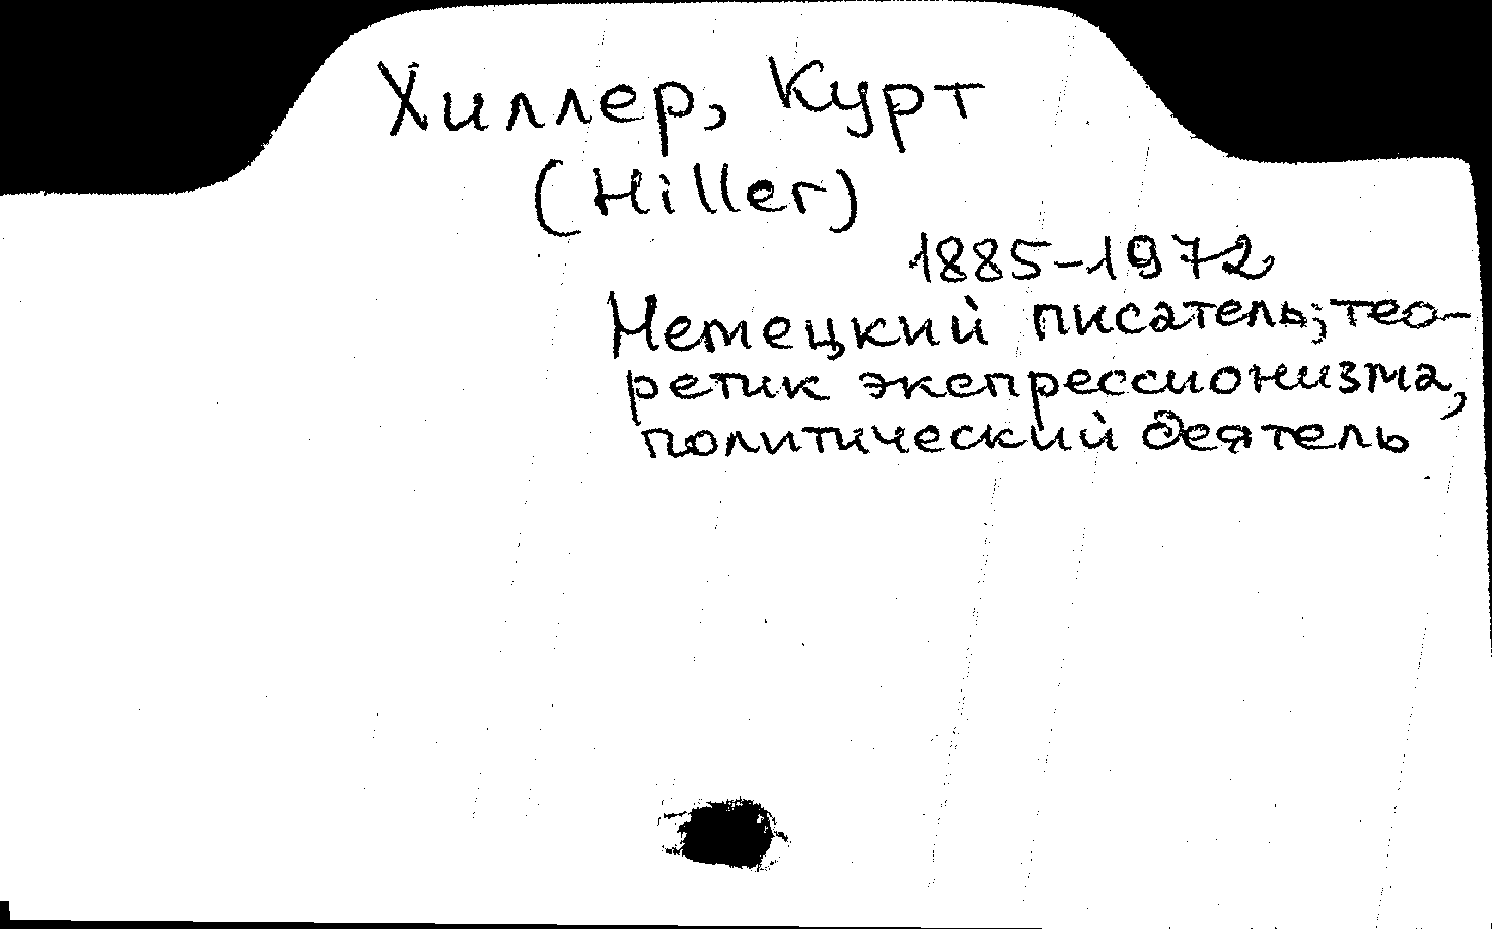 Хиллер, Курт
(Hiller)
1885-1972
Немецкий писатель; тео-
ретик экспрессионизма,
политический деятель